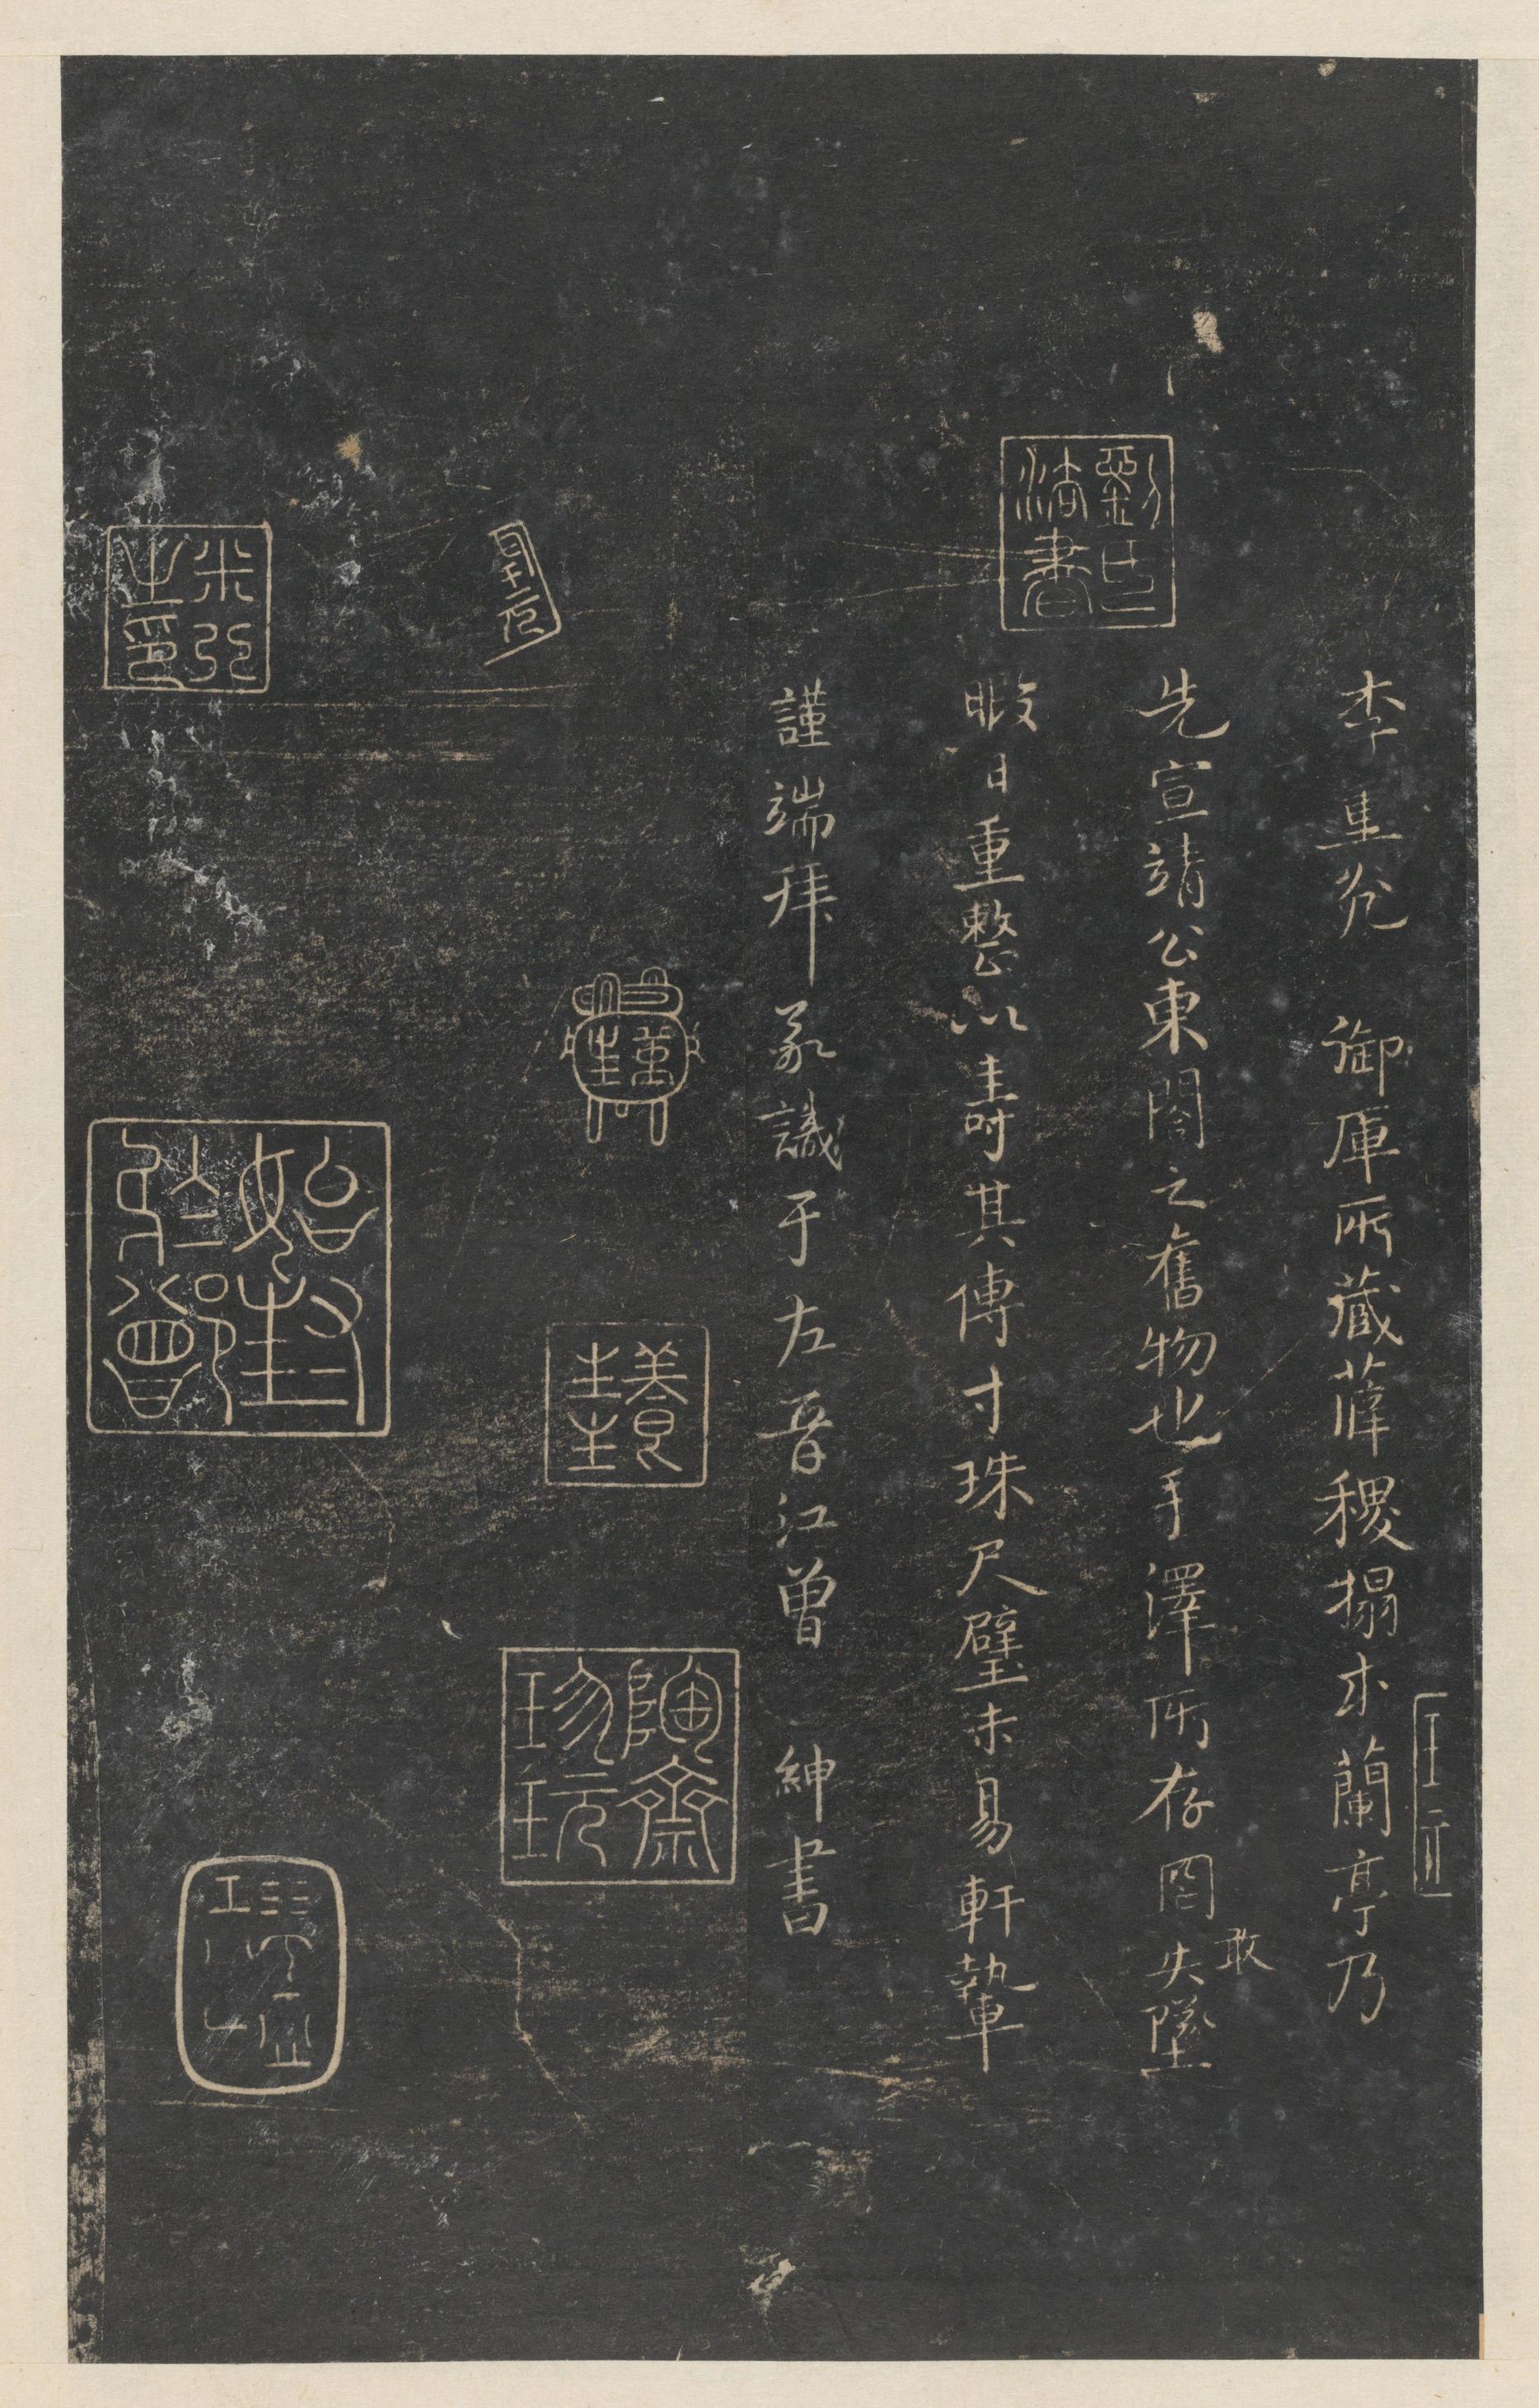 李重光 御庫所藏薛稷搨本蘭亭乃
先宣靖公東閣之舊物也手澤所存罔敢失墜
暇日重整以壽其傳寸珠尺璧未易軒輊
謹端拜識于左晉江曾 紳書
陶齋珍玩